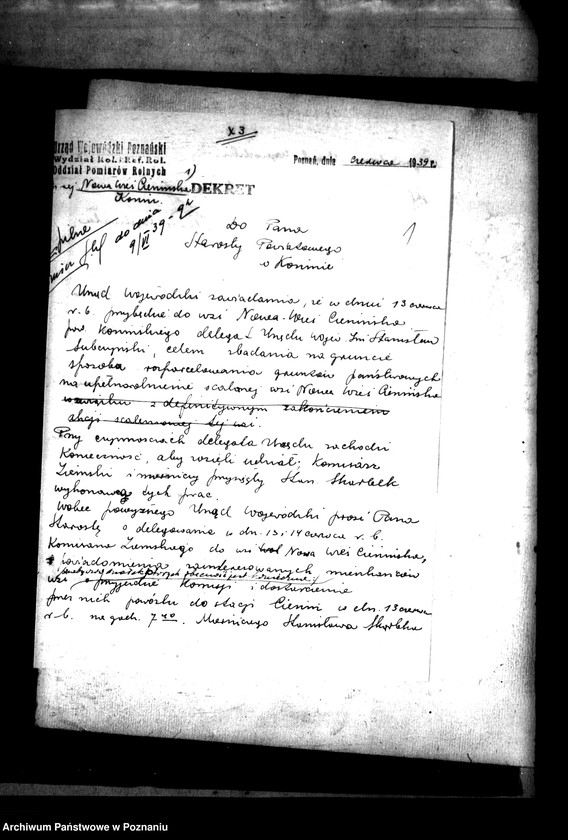 x 3
Urząd Wojewódzki Poznański
Wydział Rol. i Ref. Rol.
Oddział Pomiarów Rolnych
Poznań, dnia czerwca 1939 r.
Nowa Wieś Cienińska 1) DEKRET
Konin.
do dnia
9/VI 39 - 9
1
Do Pana
Starosty Powiatowego
w Koninie
Urząd Wojewódzki zawiadamia, że w dniu 13 czerwca
r.b. przybędzie do wsi Nowa-Wieś Cienińska
pow. Konińskiego delegat Urzędu Wojew. Inż. Stanisław
celem zbadania na gruncie
sposobu rozparcelowania gruntów państwowych
na upełnorolnienie scalonej wsi Nowa Wieś Cienińska
w związku z definitywnym zakończeniem
akcji scaleniowej tej wsi.
Przy czynnościach delegata Urzędu zachodzi
konieczność, aby wzięli udział: Komisarz
Ziemski i mierniczy przysięgły Stan. Skarbek
wykonawca tych prac.
Wobec powyższego Urząd Wojewódzki prosi Pana
Starostę o delegowanie w dn. 13 i 14 czerwca r.b.
Komisarza Ziemskiego do wsi Nowa Wieś Cienińska,
powiadomienia zainteresowanych mieszkańców
wsi o przyjeździe Komisji i dostarczenie
przez nich powózki do stacji Cienin w dn. 13 czerwca
r.b. na godz. 7. Mierniczego Stanisława Skarbka
Archiwum Państwowe w Poznaniu